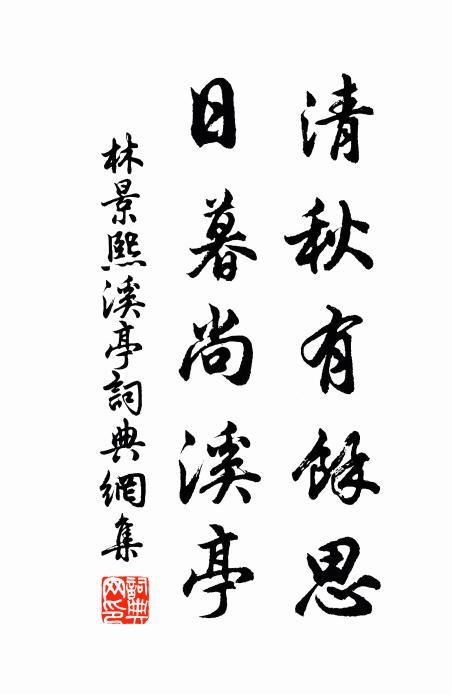 清秋有餘思
日暮尚溪亭
林景熙溪亭詞典網集
詞典
网印